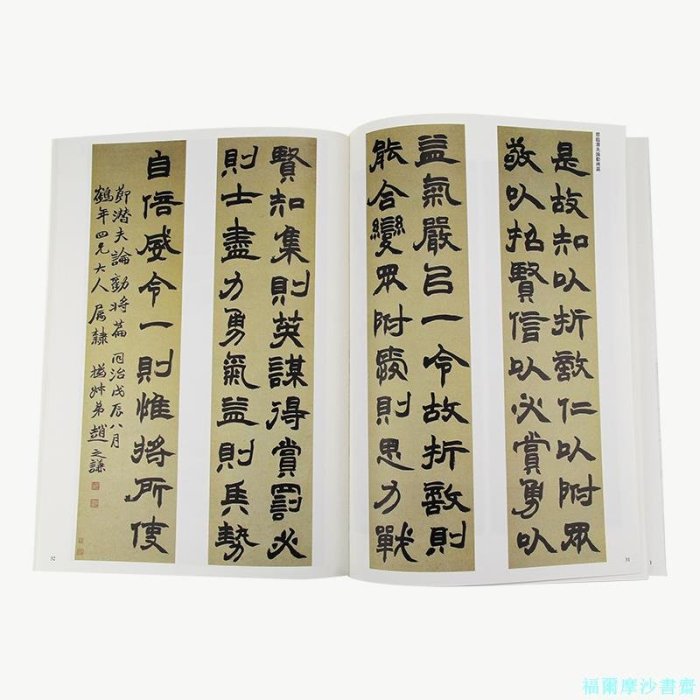 是故知以折敵仁以附眾
敬以招賢信以必賞勇以
益氣嚴㠯一令故折敵則
能合變眾附愛則思力戰
賢知集則英謀得賞罰必
則士盡力勇氣益則兵勢
自倍威令一則惟將所使
節潛夫論勸將篇 同治戊辰八月
鶴年四兄大人 屬隸 撝叔弟趙之謙
52
51
福爾摩沙書齋